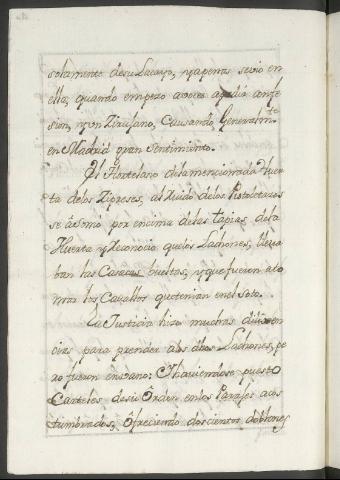 solamente de su Lacayo, y apenas se vio en
ella, quando empezo a voces a pedir confe
sion, y un Zirujano, Causando Generalmte
en Madrid gran Sentimiento.
El Hortelano de la mencionada Huer
ta de los Zipreses, al Ruido de los Pistoletazos
se asomó por encima de las tapias de la
Huerta y Reconocio que los Ladrones, lleva
ban las Casacas bueltas, y que fueron a to
mar los Cavallos que tenian en el soto.
La Justicia hizo muchas diligen
cias para prender a los dhos Ladrones, pe
ro fueron en vano: Haviendose puesto
Carteles de su Orden en los Parajes acos
tumbrados, ôfreciendo doscientos doblones